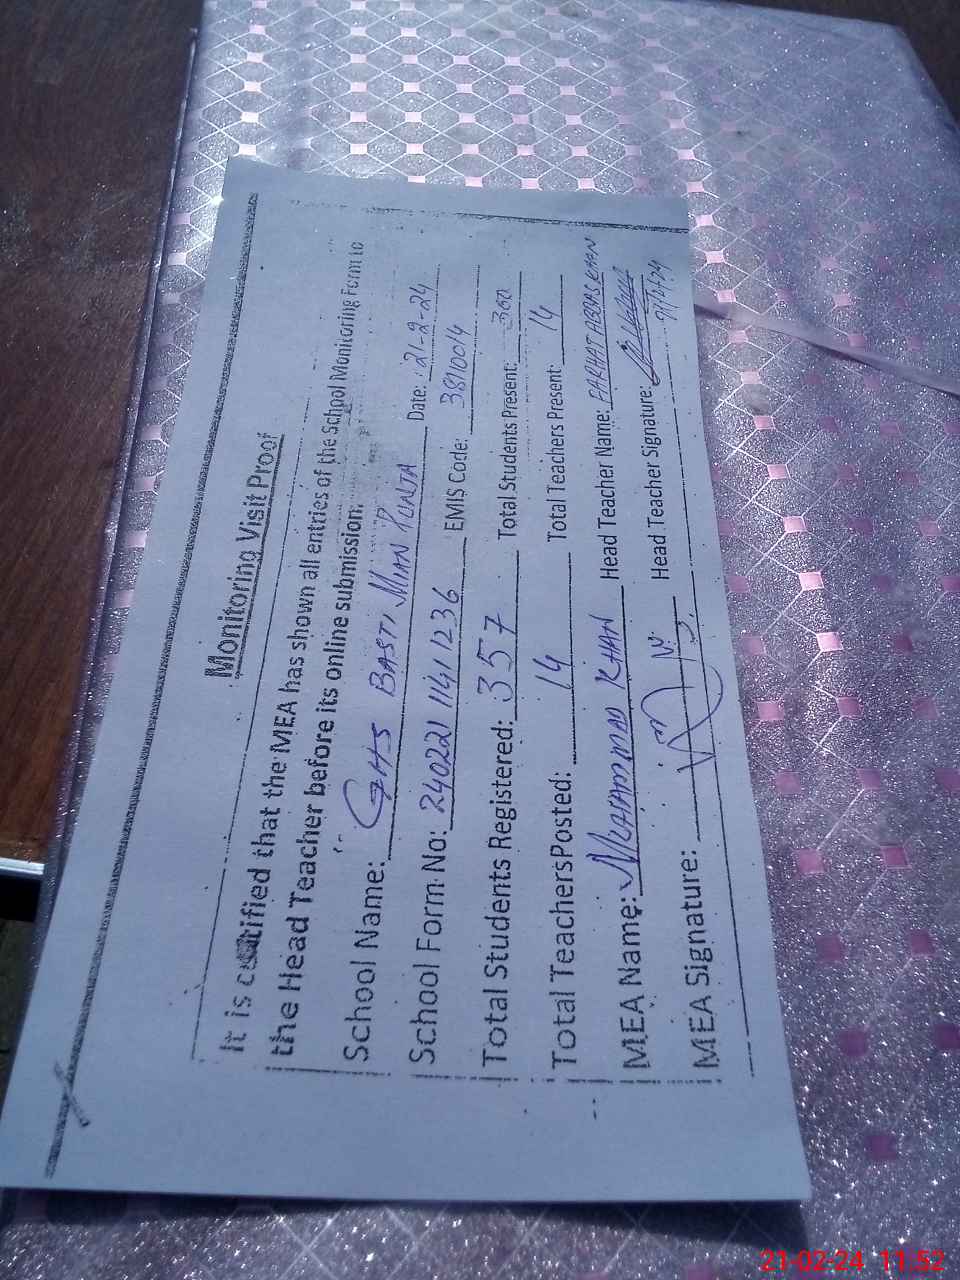 Monitoring Visit Proof
It is certified that the MEA has shown all entries of the School Monitoring Form to
the Head Teacher before its online submission.
School Name: GHS BASTI MIAN Date: 21-2-24
School Form No: 240221 1141 1236 EMIS Code: 3810014
Total Students Registered: 357 Total Students Present:
Total Teachers Posted: 14 Total Teachers Present: 14
MEA Name: MUHAMMAD KHAN Head Teacher Name: FARHAT ABBAS KHAN
MEA Signature: Head Teacher Signature:
21-02-24 11:52